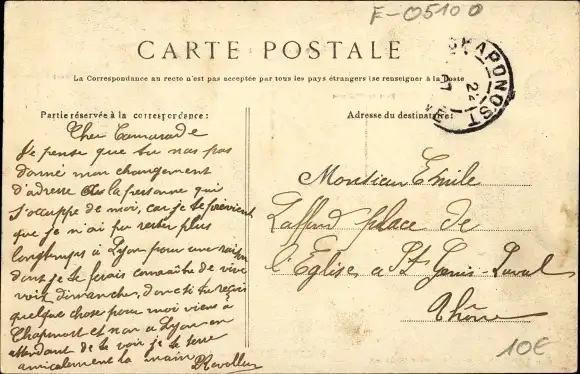 F-05100
CARTE POSTALE
La Correspondance au recto n'est pas acceptée par tous les pays étrangers (se renseigner à la Poste
CHAPONOST
Partie réservée à la correspondance :
Adresse du destinataire:
Cher Camarade
Je pense que tu nas pas
donné mon changement
d'adresse à la personne qui
s'occupe de moi, car je te préviens
que je n'ai pu rester plus
longtemps à Lyon pour une raison
dont je te ferais connaître de vive
voix dimanche, donc si tu reçois
quelque chose pour moi viens à
Chaponost et non a Lyon en
attendant de te voir je te serre
amicalement la main
Monsieur Emile
Laffond place de
l'Eglise a St Genis-Laval
Rhône
10€